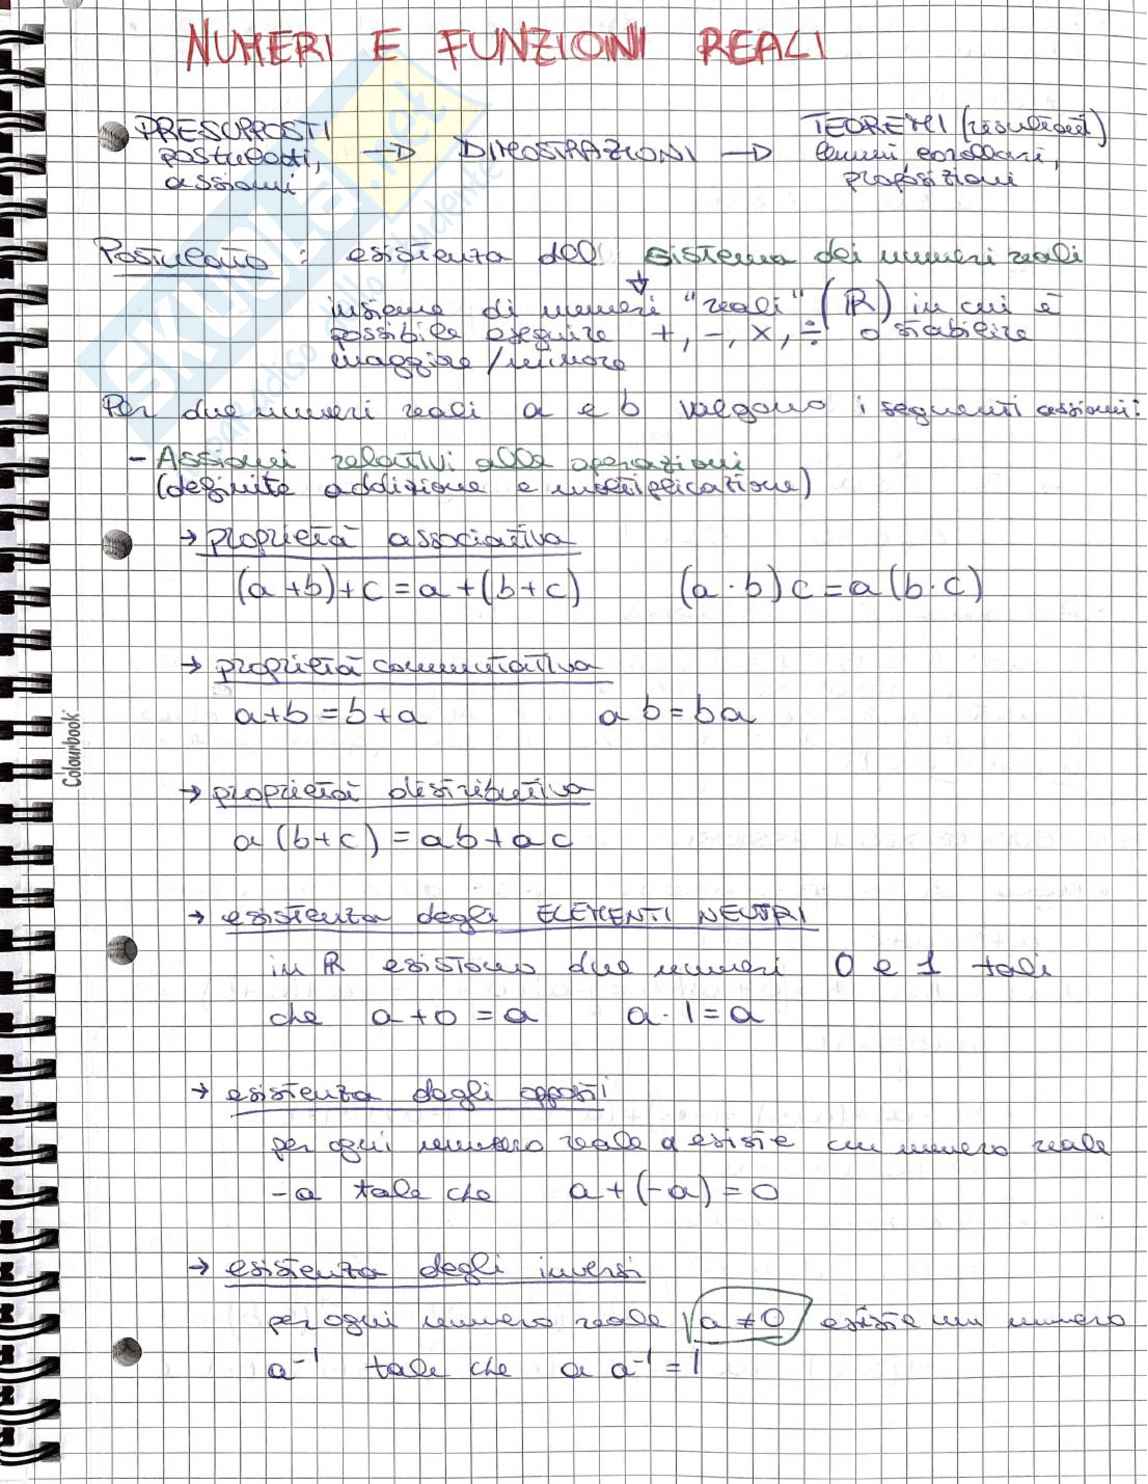 NUMERI E FUNZIONI REALI
PRESUPPOSTI
postulati,
assiomi
→ DIMOSTRAZIONI →
TEOREMI (risultati)
lemmi, corollari,
proposizioni
Postulato : esistenza del sistema dei numeri reali
↓
insieme di numeri "reali" (ℝ) in cui è
possibile eseguire +, -, ×, ÷ o stabilire
maggiore/minore
Per due numeri reali a e b valgono i seguenti assiomi:
- Assiomi relativi alle operazioni
(definite addizione e moltiplicazione)
→ proprietà associativa
(a+b)+c=a+(b+c) (a·b)c=a(b·c)
→ proprietà commutativa
a+b=b+a ab=ba
→ proprietà distributiva
a(b+c)=ab+ac
→ esistenza degli ELEMENTI NEUTRI
in ℝ esistono due numeri 0 e 1 tali
che a+0=a a·1=a
→ esistenza degli opposti
per ogni numero reale a esiste un numero reale
-a tale che a+(-a)=0
→ esistenza degli inversi
per ogni numero reale a≠0 esiste un numero
a⁻¹ tale che a a⁻¹=1
Colourbook
SKUOLA.net